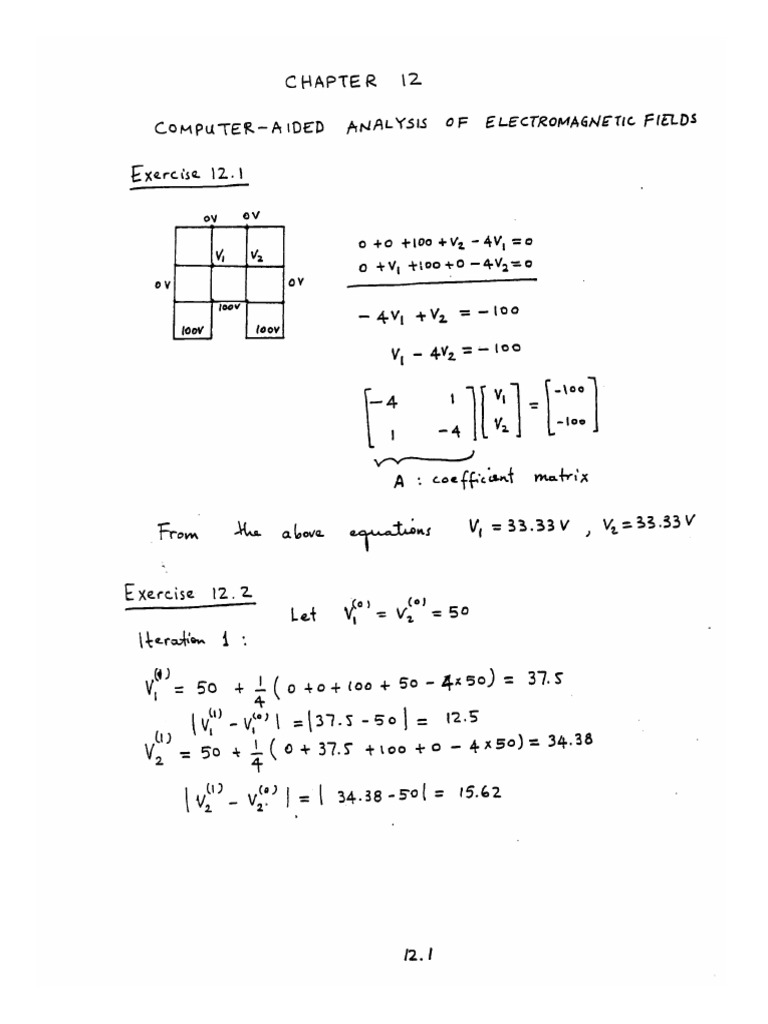 CHAPTER 12
COMPUTER-AIDED ANALYSIS OF ELECTROMAGNETIC FIELDS
Exercise 12.1
0V 0V
V₁ V₂
0V 0V
100V
100V 100V
0 + 0 + 100 + V₂ - 4V₁ = 0
0 + V₁ + 100 + 0 - 4V₂ = 0
- 4V₁ + V₂ = -100
V₁ - 4V₂ = -100
[-4 1] [V₁] = [-100]
[1 -4] [V₂] [-100]
A : coefficient matrix
From the above equations V₁ = 33.33 V , V₂ = 33.33 V
Exercise 12.2
Let V₁⁽⁰⁾ = V₂⁽⁰⁾ = 50
Iteration 1 :
V₁⁽¹⁾ = 50 + 1/4 ( 0 + 0 + 100 + 50 - 4×50) = 37.5
|V₁⁽¹⁾ - V₁⁽⁰⁾| = |37.5 - 50| = 12.5
V₂⁽¹⁾ = 50 + 1/4 ( 0 + 37.5 + 100 + 0 - 4×50) = 34.38
|V₂⁽¹⁾ - V₂⁽⁰⁾| = | 34.38 - 50| = 15.62
12.1